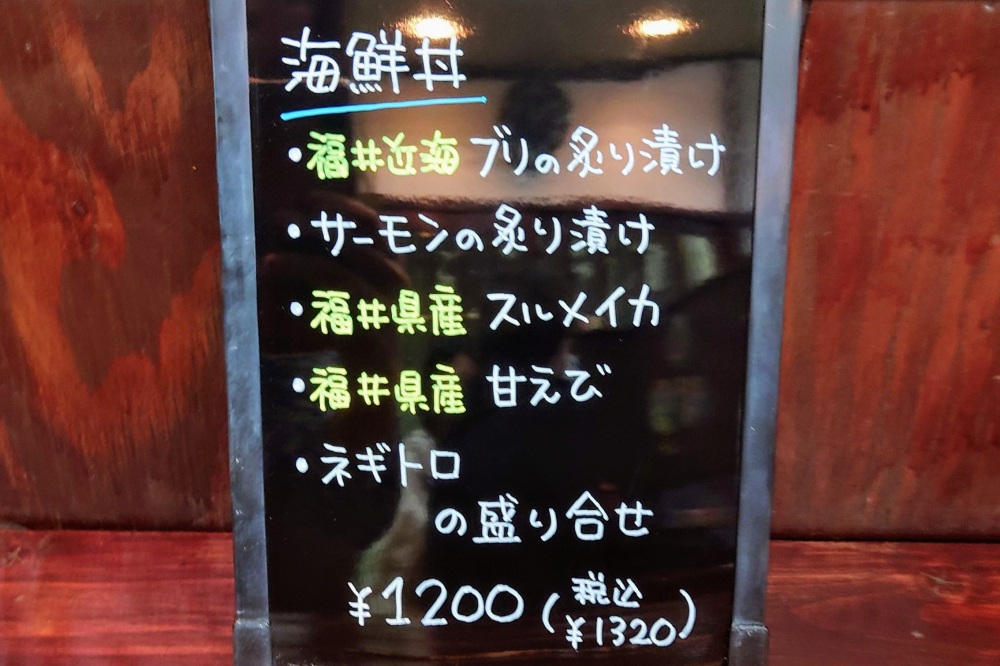 海鮮丼
・福井近海 ブリの炙り漬け
・サーモンの炙り漬け
・福井県産 スルメイカ
・福井県産 甘えび
・ネギトロ
の盛り合せ
¥1200(税込
¥1320)